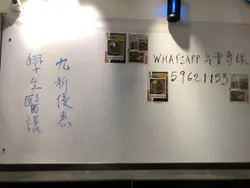 學生醫護
九折優惠
WHATSAPP 外賣專線
59621153